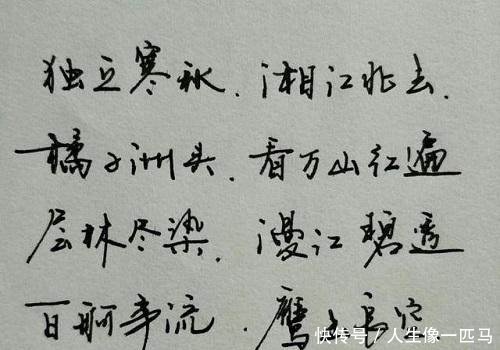 独立寒秋.湘江北去.
橘子洲头.看万山红遍
层林尽染.漫江碧透
百舸争流.鹰击长空
快传号/人生像一匹马